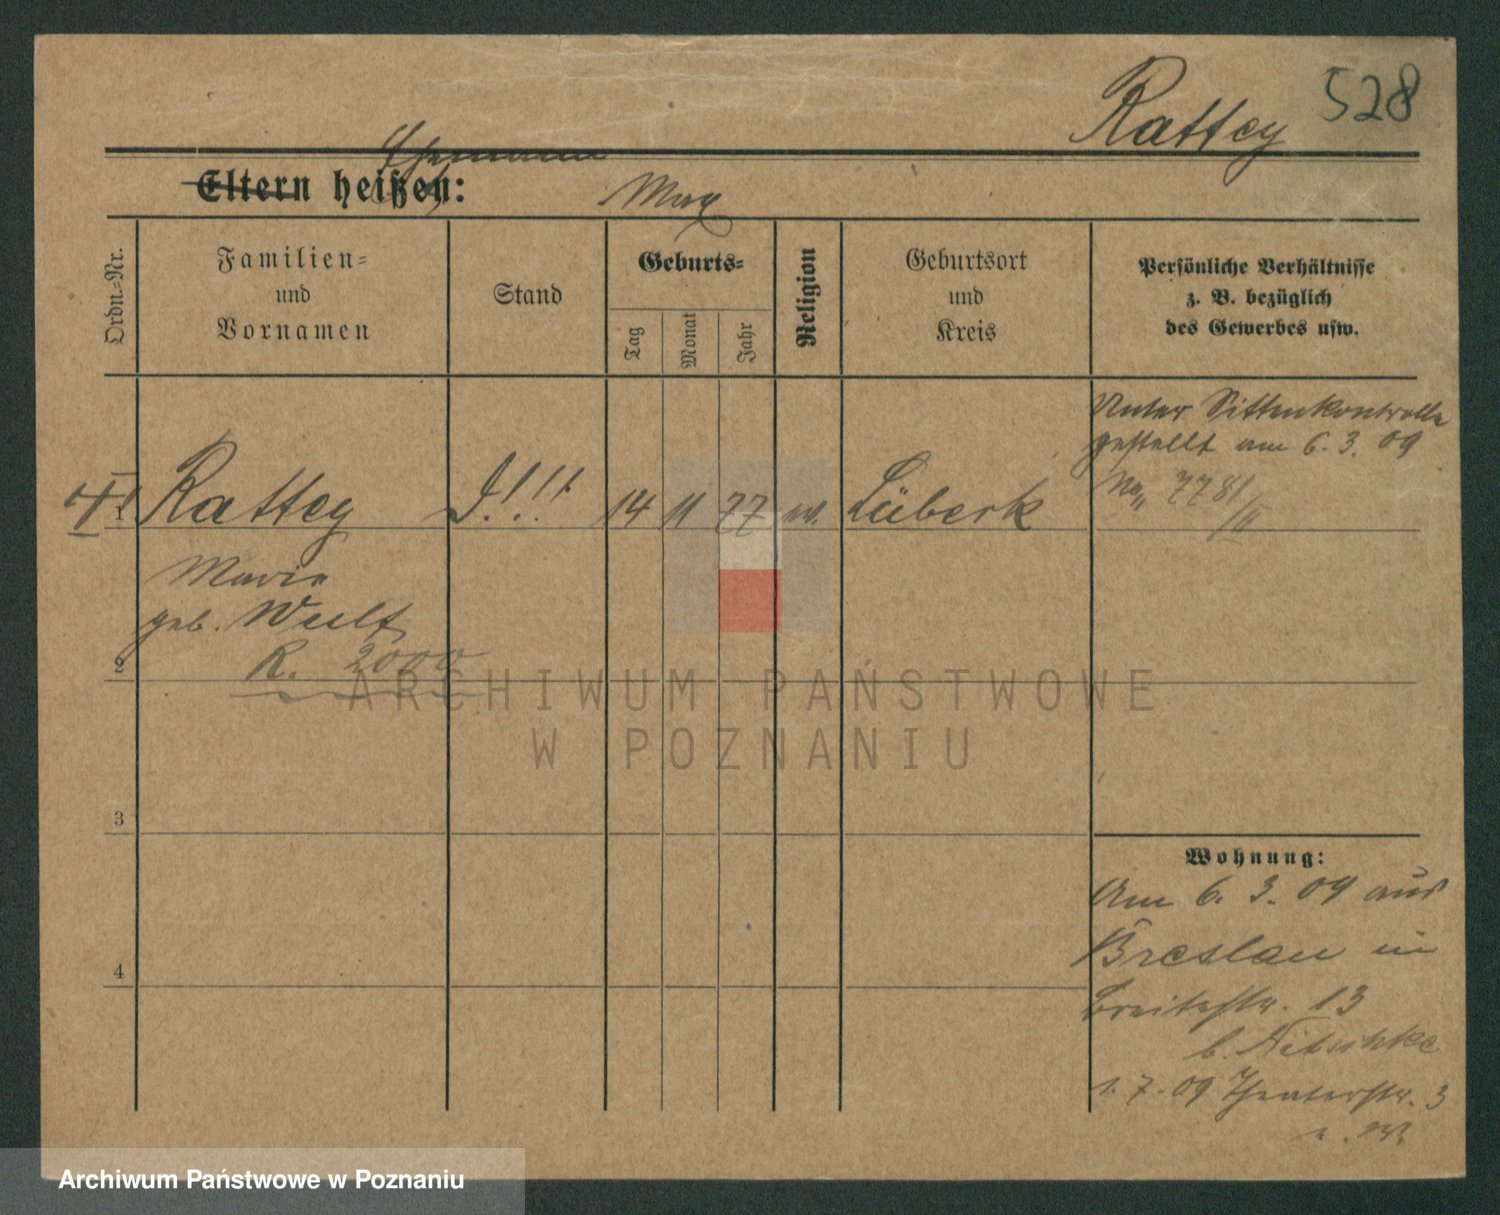 Rattey 528
Ehemann
Eltern heißen: Max
Ordn.-Nr.
Familien-
und
Vornamen
Stand
Geburts-
Tag
Monat
Jahr
Religion
Geburtsort
und
Kreis
Persönliche Verhältnisse
z. B. bezüglich
des Gewerbes usw.
Unter Sittenkontrolle
gestellt am 6.3.09
7781/II
1 Rattey D!!! 14 11 77 ev. Lübeck
Marie
geb. Wulf
2 R. 2000
ARCHIWUM PAŃSTWOWE
W POZNANIU
3
Wohnung:
4
Am 6.3.09 aus
Breslau in
Breitestr. 13
b. Nitschke
1.7.09 Theaterstr. 3
Archiwum Państwowe w Poznaniu